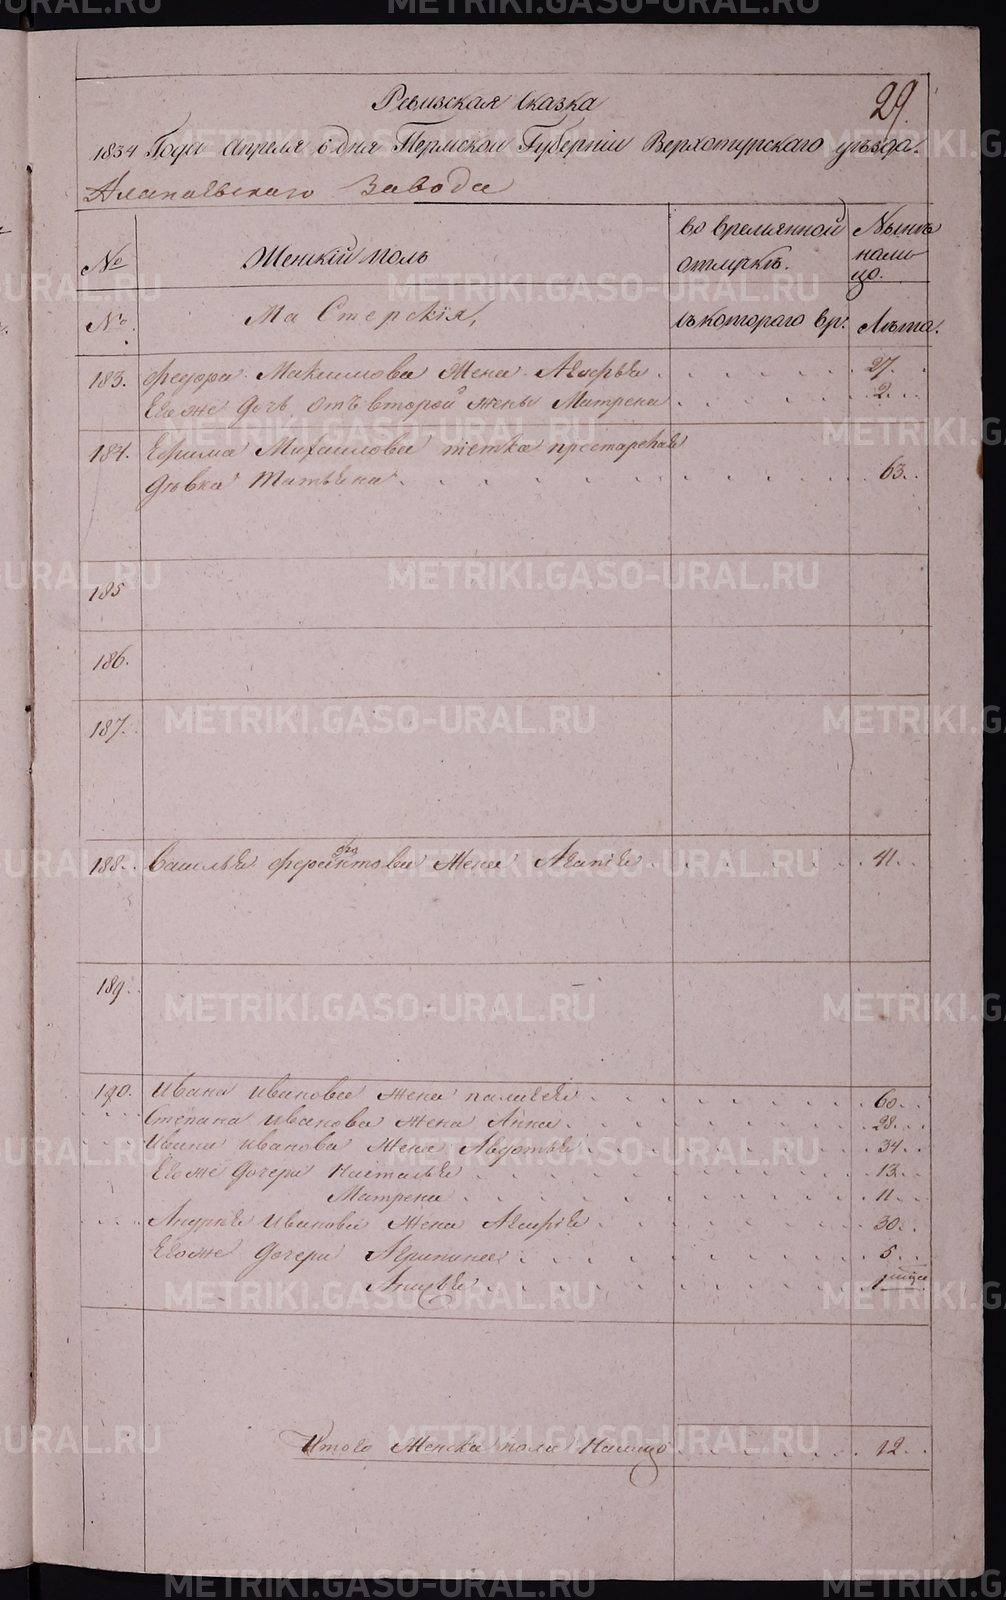 29.
Ревизская Сказка
1834 Года Апреля 6 дня Пермской Губернии Верхотурскаго уезда.
Алапаевскаго Завода
№ Женскій полъ во времьянной отлучкѣ. Нынѣ налицо.
№ Мастерскія, съ котораго вр: Лѣта.
183. Федора Максимова Жена Агафья 27.
Его же дочь отъ второй жены Матрена 2
184. Ефима Михаилова тетка престарелая
девка Татьяна 63.
185
186.
187.
188. Василья жена Агапия 41.
189.
190. Ивана Иванова жена Палагея 60.
Степана Иванова жена Анна 28.
Ивана Иванова жена Авдотья 34
Его же дочери Наталья 13
Матрена 11
Андрея Иванова жена Агафия 30.
Его же дочери Агрипина 5
1
Итого Женска пола Налицо 12
METRIKI.GASO-URAL.RU